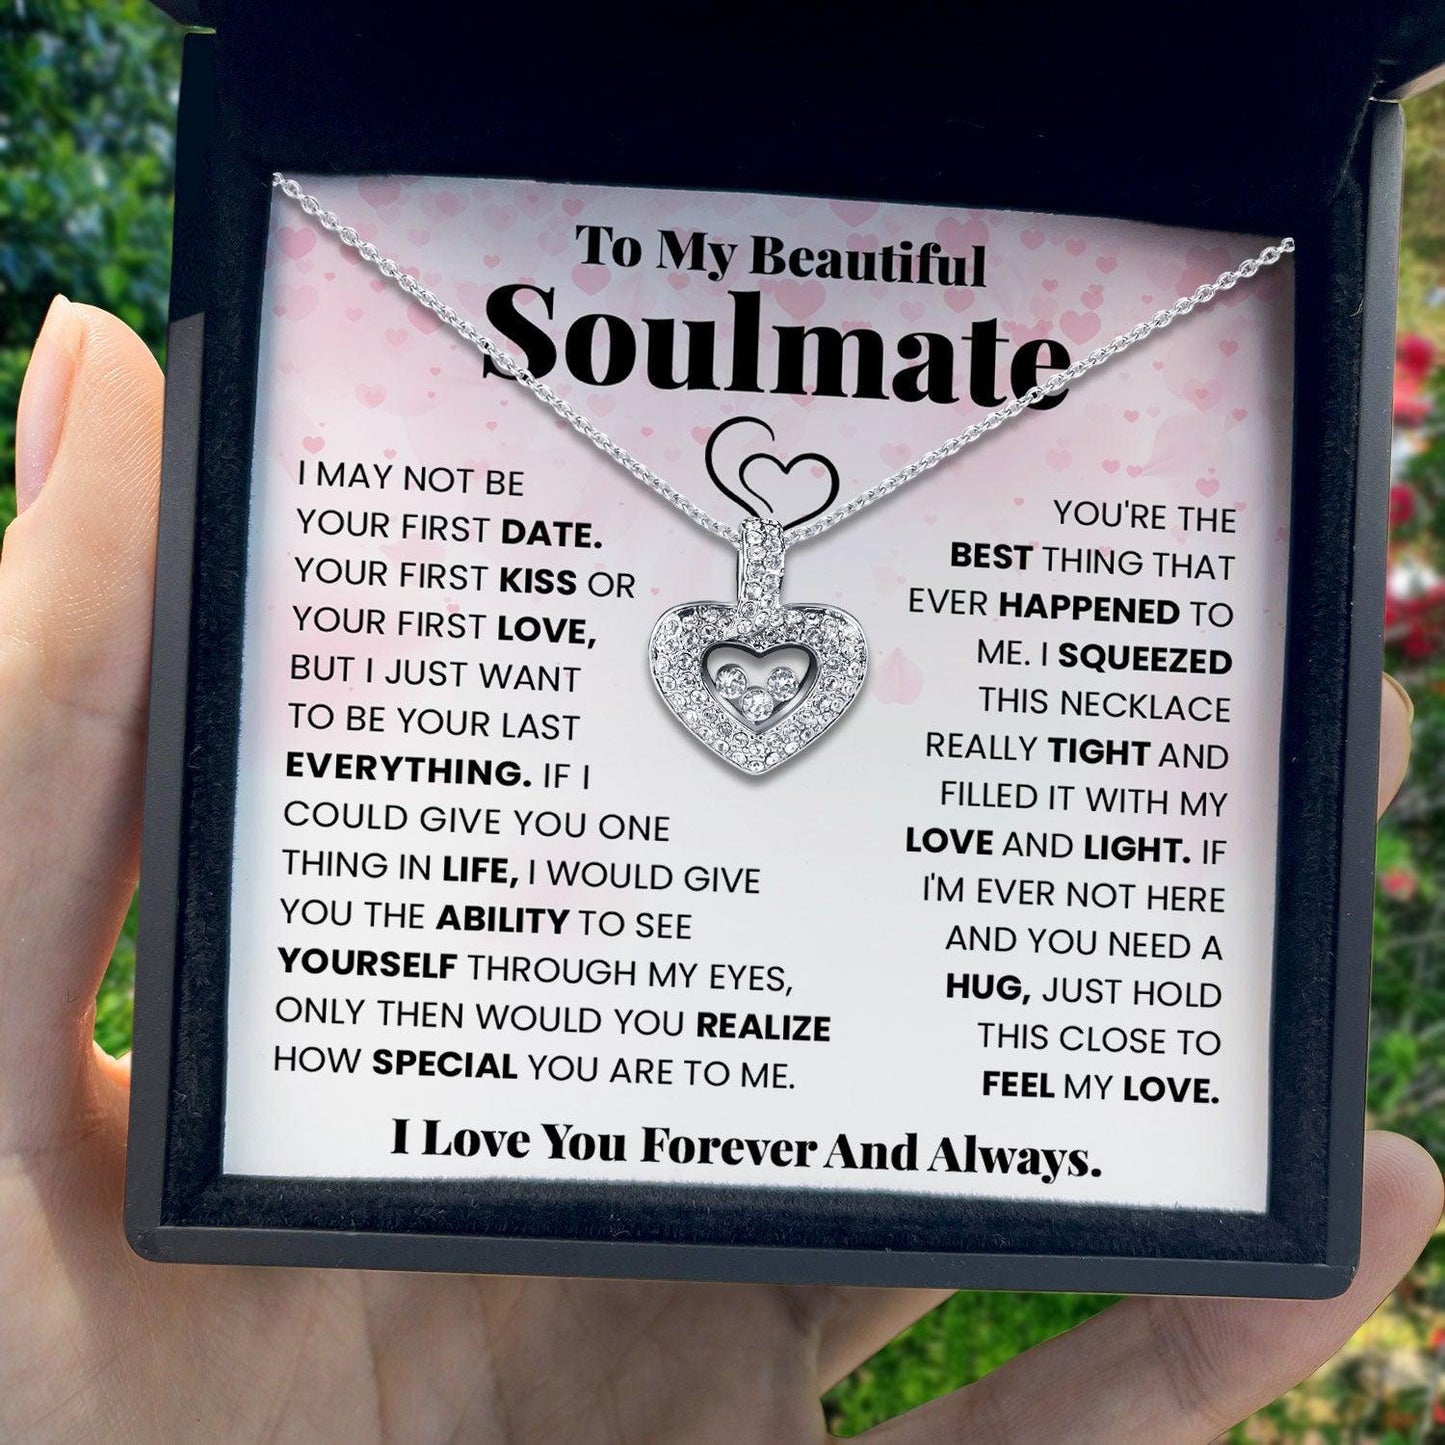 To My Beautiful
Soulmate
I MAY NOT BE
YOUR FIRST DATE.
YOUR FIRST KISS OR
YOUR FIRST LOVE,
BUT I JUST WANT
TO BE YOUR LAST
EVERYTHING. IF I
COULD GIVE YOU ONE
THING IN LIFE, I WOULD GIVE
YOU THE ABILITY TO SEE
YOURSELF THROUGH MY EYES,
ONLY THEN WOULD YOU REALIZE
HOW SPECIAL YOU ARE TO ME.
YOU'RE THE
BEST THING THAT
EVER HAPPENED TO
ME. I SQUEEZED
THIS NECKLACE
REALLY TIGHT AND
FILLED IT WITH MY
LOVE AND LIGHT. IF
I'M EVER NOT HERE
AND YOU NEED A
HUG, JUST HOLD
THIS CLOSE TO
FEEL MY LOVE.
I Love You Forever And Always.